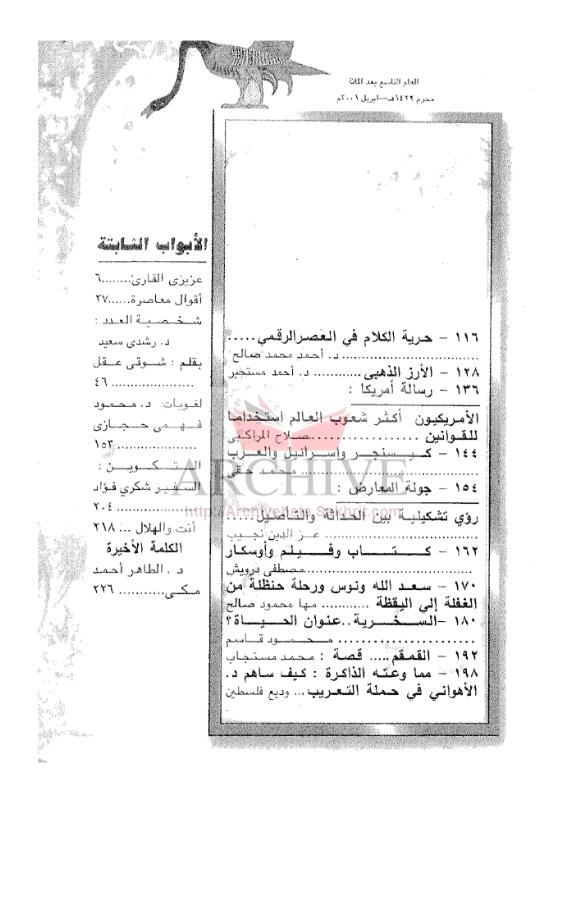 العام التاسع بعد المائة
محرم ١٤٢٢هـ - ابريل ٢٠٠١م
١١٦ - حرية الكلام في العصر الرقمي.....؟
د. أحمد محمد صالح
١٢٨ - الأرز الذهبى ............ د. أحمد مستجير
١٣٦ - رسالة أمريكا :
الأمريكيون أكثر شعوب العالم استخداما
للقوانين ..................صلاح المراكبى
١٤٤ - كيسنجر وإسرائيل والعرب
محمد حقى
١٥٤ - جولة المعارض :
رؤي تشكيلية بين الحداثة والتأصيل.....
عز الدين نجيب
١٦٢ - كتاب وفيلم وأوسكار
مصطفى درويش
١٧٠ - سعد الله ونوس ورحلة حنظلة من
الغفلة إلي اليقظة ............ مها محمود صالح
١٨٠ -السخرية..عنوان الحياة؟
محمود قاسم
١٩٢ - القمقم..... قصة : محمد مستجاب
١٩٨ - مما وعته الذاكرة : كيف ساهم د.
الأهواني في حملة التعريب... وديع فلسطين
الأبواب الثابتة
عزيزى القارئ........٦
أقوال معاصرة......٢٧
شخصية العدد :
د. رشدى سعيد
بقلم : شوقى عقل
.................... ٤٦
لغويات: د. محمود
فهمى حجازى
.................... ١٥٣
التكوين :
السفير شكري فؤاد
.................... ٢٠٤
أنت والهلال ... ٢١٨
الكلمة الأخيرة
د . الطاهر أحمد
مكى........... ٢٢٦
ARCHIVE
http://Archivebeta.Sakhrit.com